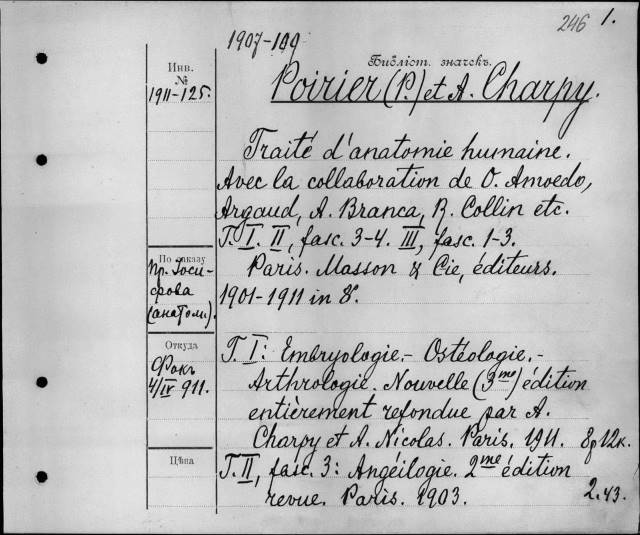 246 1.
1907-109
Библіот. значекъ.
Инв.
№
1911-125.
Poirier (P.) et A. Charpy.
Traité d'anatomie humaine.
Avec la collaboration de O. Amoedo,
Argaud, A. Branca, R. Collin etc.
T. I. II, fasc. 3-4. III, fasc. 1-3.
Paris. Masson & Cie, éditeurs.
1901-1911 in 8.
По заказу
Пр. Іоси-
фова
(анатом.).
Откуда
Фокъ
4/IV 911.
Цѣна
T. I: Embryologie.- Ostéologie.-
Arthrologie. Nouvelle (3me) édition
entièrement refondue par A.
Charpy et A. Nicolas. Paris. 1911. 8р 12к.
T. II, fasc. 3: Angéilogie. 2me édition
revue. Paris. 1903. 2.43.